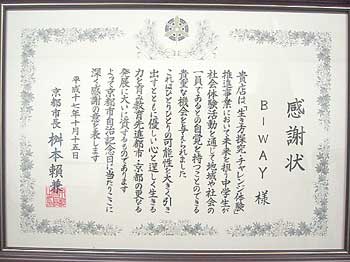 感謝状
BIWAY 様
貴店は「生き方探究・チャレンジ体験」
推進事業において未来を担う中学生が
社会体験活動を通して地域や社会の
一員であるとの自覚を持つことのできる
貴重な機会を与えられました
これはひとりひとりの可能性を大きく引き
出すとともに優しい心と逞しく生きる
力を育む教育先進都市・京都の更なる
発展に大いに資するものであります
よって京都市自治記念日に当たりここに
深く感謝の意を表します
平成十七年十月十五日
京都市長 桝本賴兼